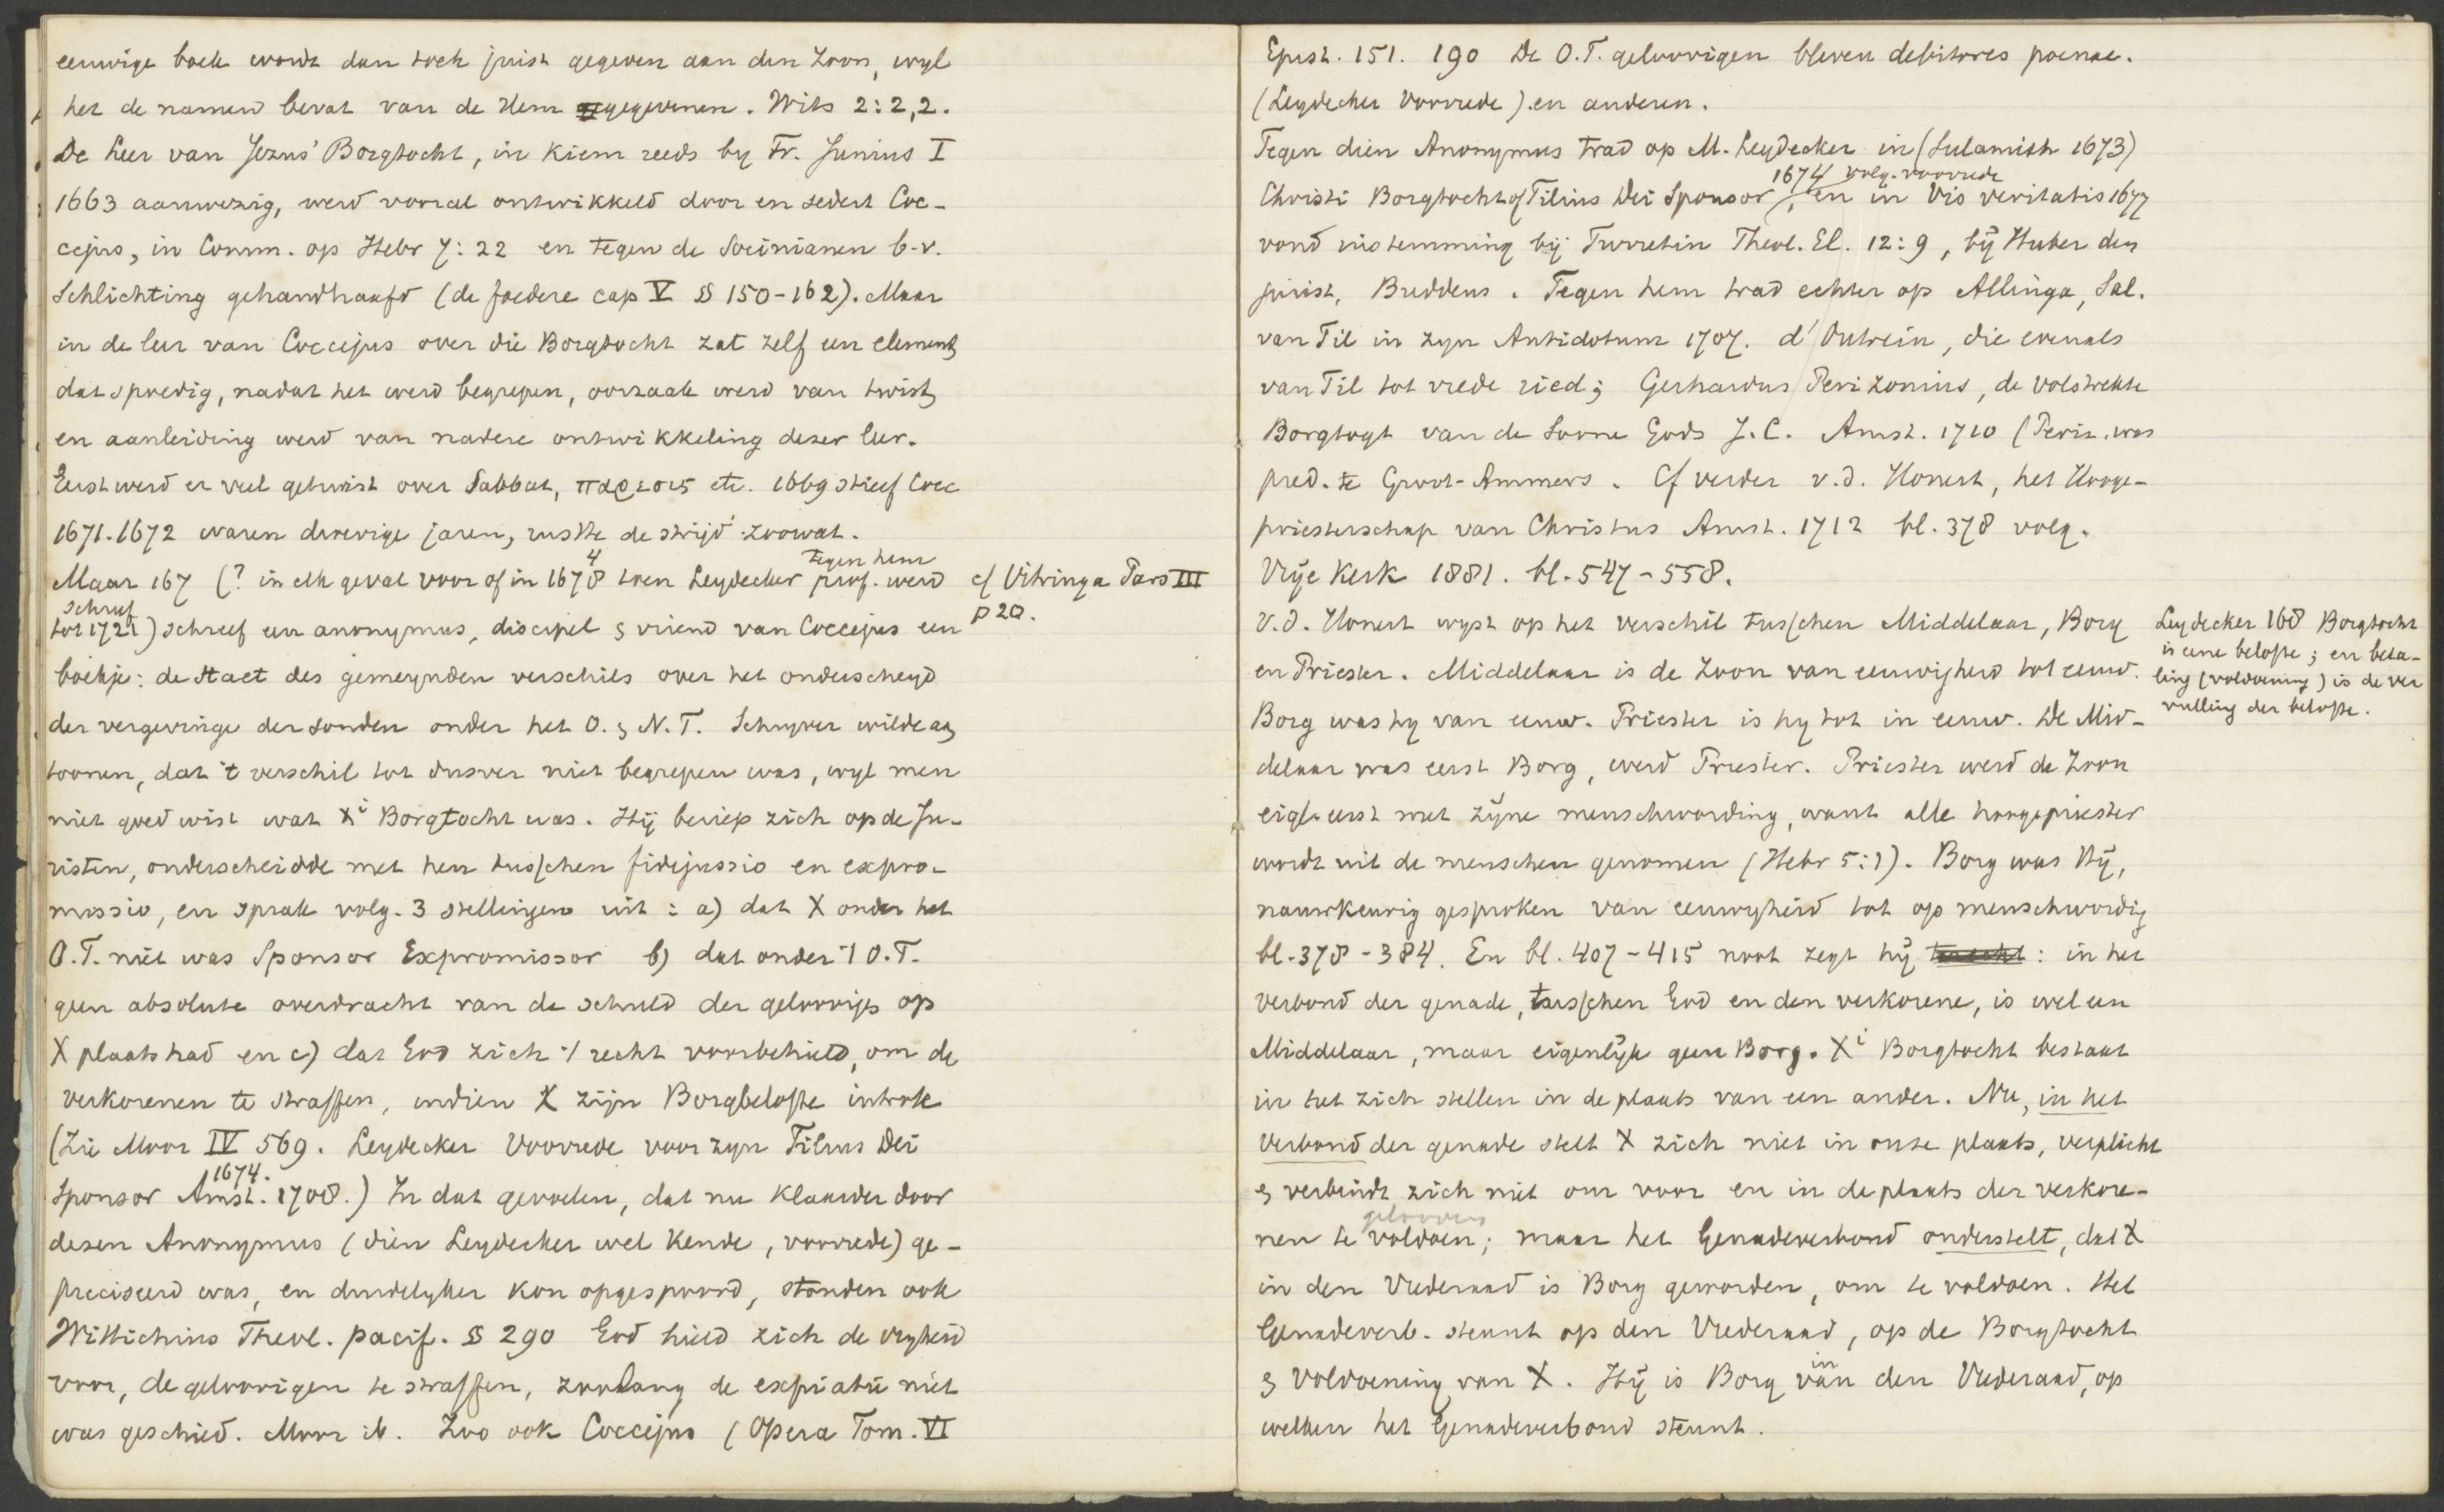 eeuwige boek wordt dan toch juist gegeven aan den Zoon, wyl
het de namen bevat van de Hem gegevenen. Wits 2:2,2.
De Leer van Jezus' Borgtocht, in kiem reeds by Fr. Junius I
1663 aanwezig, werd vooral ontwikkeld door en sedert Coc-
cejus, in Comm. op Hebr 7:22 en tegen de Socinianen b.v.
Schlichting gehandhaafd (de foedere cap V §§ 150-162). Maar
in de leer van Coccejus over die Borgtocht zat zelf een element,
dat spoedig, nadat het werd begrepen, oorzaak werd van twist,
en aanleiding werd van nadere ontwikkeling dezer leer.
Eerst werd er veel getwist over Sabbat, παρεσις etc. 1669 stierf Cocc
1671.1672 waren droevige jaren, rustte de strijd zoowat.
Maar 167 (? in elk geval voor of in 1678 4 toen Leydecker tegen hem prof. werd
cf Vitringa Pars III
p 20.
schreef
tot 1721) schreef een anonymus, discipel & vriend van Coccejus een
boekje: de Staet des gemeynden verschils over het onderscheyd
der vergevinge der sonden onder het O. & N.T. Schryver wilde aan
toonen, dat 't verschil tot dusver niet begrepen was, wyl men
niet goed wist wat Xi Borgtocht was. Hij beriep zich op de Ju-
risten, onderscheidde met hen tusschen fidejussio en expro-
missio, en sprak volg. 3 stellingen uit: a) dat X onder het
O.T. niet was Sponsor Expromissor b) dat onder 't O.T.
geen absolute overdracht van de schuld der geloovigen op
X plaats had en c) dat God zich 't recht voorbehield, om de
verkorenen te straffen, indien X zijn Borgbelofte introk
(Zie Moor IV 569. Leydecker Voorrede voor zyn Filius Dei
Sponsor Amst. 1674. 1708.) In dat gevoelen, dat nu klaarder door
dezen Anonymus (dien Leydecker wel kende, voorrede) ge-
preciseerd was, en duidelyker kon opgespoord, stonden ook
Wittichius Theol. pacif. §§ 290 God hield zich de vryheid
voor, de geloovigen te straffen, zoolang de expiatie niet
was geschied. Moor ib. Zoo ook Coccejus (Opera Tom. VI
Epist. 151. 190 De O.T. geloovigen bleven debitores poenae.
(Leydecker Voorrede). en anderen.
Tegen dien Anonymus trad op M. Leydecker in (Sulamith 1673)
1674 volg. voorrede
Christi Borgtocht of Filius Dei Sponsor, en in Vis veritatis 1677
vond instemming bij Turretin Theol. El. 12:9, bij Huber den
jurist, Buddeus. Tegen hem trad echter op Allinga, Sal.
van Til in zyn Antidotum 1707. d'Outrein, die evenals
van Til tot vrede ried; Gerhardus Perizonius, de volstrekte
Borgtogt van de Soone Gods J.C. Amst. 1710 (Periz. was
pred. te Groot-Ammers. Cf verder v.d. Honert, het Hooge-
priesterschap van Christus Amst. 1712 bl. 378 volg.
Vrije Kerk 1881. bl. 547-558.
v.d. Honert wyst op het verschil tusschen Middelaar, Borg
en Priester. Middelaar is de Zoon van eeuwigheid tot eeuw.
Borg was hy van eeuw. Priester is hy tot in eeuw. De Mid-
delaar was eerst Borg, werd Priester. Priester werd de Zoon
eigl. eerst met zijne menschwording, want alle hoogepriester
wordt uit de menschen genomen (Hebr 5:1). Borg was Hij,
nauwkeurig gesproken van eeuwigheid tot op menschwording
bl. 378-384. En bl. 407-415 noot zegt hij: in het
verbond der genade, tusschen God en den verkorene, is wel een
Middelaar, maar eigenlijk geen Borg. Xi Borgtocht bestaat
in het zich stellen in de plaats van een ander. Nu, in het
Verbond der genade stelt X zich niet in onze plaats, verplicht
& verbindt zich niet om voor en in de plaats der verkore-
nen te gelooven voldoen; maar het Genadeverbond onderstelt, dat X
in den Vrederaad is Borg geworden, om te voldoen. Het
Genadeverb. steunt op den Vrederaad, op de Borgtocht
& voldoening van X. Hij is Borg van in den Vrederaad, op
welken het Genadeverbond steunt.
Leydecker 168 Borgtocht
is eene belofte; en beta-
ling (voldoening) is de ver
vulling der belofte.